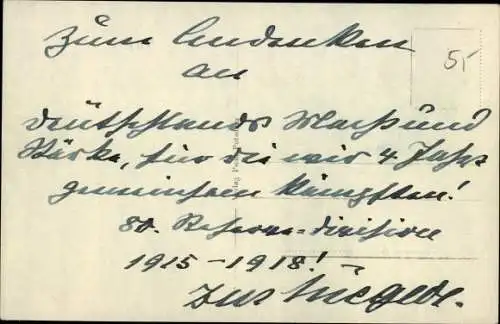 Zum Andenken
5,-
an
Deutschlands Macht und
Stärke, für die wir 4 Jahre
gemeinsam kämpften!
80. Reserve-Division
1915-1918!